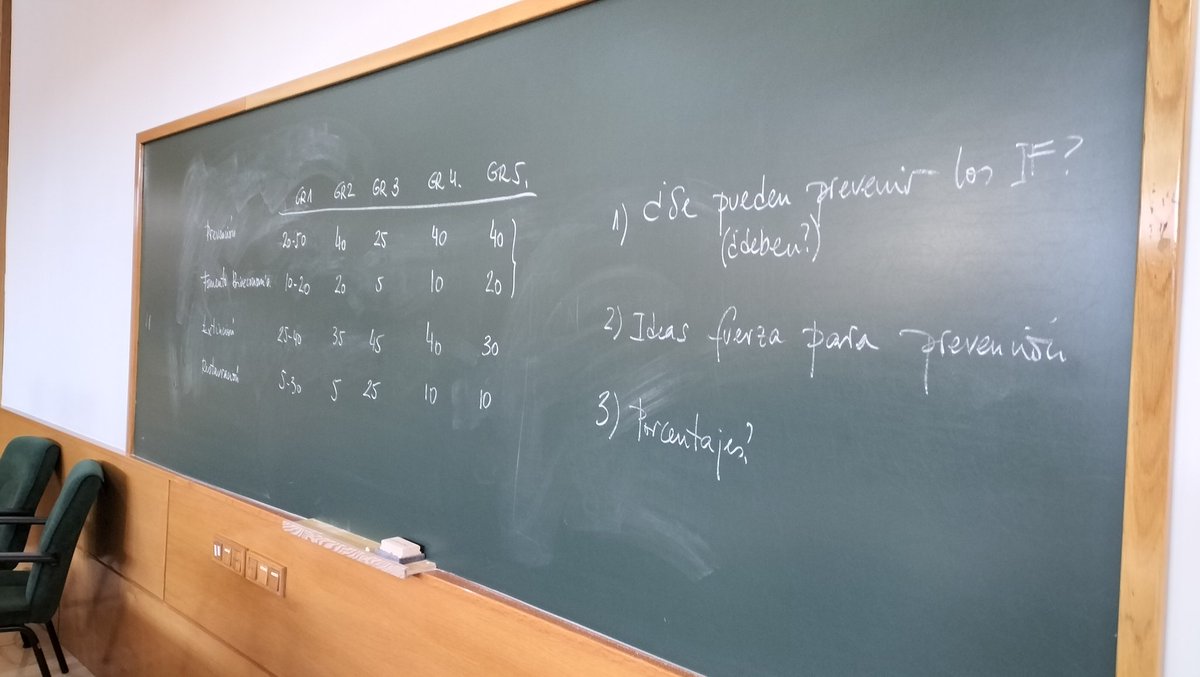 GR1 GR2 GR3 GR4. GR5.
Prevención 20-50 40 25 40 40
Fomento Bioeconomía 10-20 20 5 10 20
Extinción 25-40 35 45 40 30
Restauración 5-30 5 25 10 10
1) ¿Se pueden prevenir los IF?
(¿deben?)
2) Ideas fuerza para prevención
3) Porcentajes?